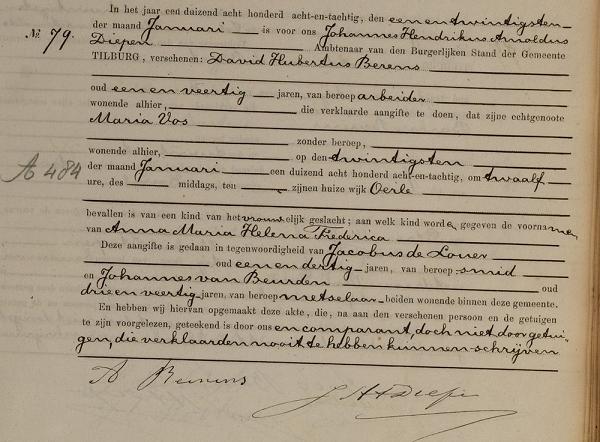 In het jaar een duizend acht honderd acht-en-tachtig, den een en twintigsten
der maand Januari is voor ons Johannes Hendrikus Arnoldus
No. 79.
Diepen Ambtenaar van den Burgerlijken Stand der Gemeente
TILBURG, verschenen: David Hubertus Berens
oud een en veertig jaren, van beroep arbeider
wonende alhier, die verklaarde aangifte te doen, dat zijne echtgenoote
Maria Vos
zonder beroep,
wonende alhier, op den twintigsten
A 484
der maand Januari een duizend acht honderd acht-en-tachtig, om twaalf
ure, des middags, ten zijnen huize wijk Oerle
bevallen is van een kind van het vrouwelijk geslacht; aan welk kind worde gegeven de voorname
van Anna Maria Helena Frederica
Deze aangifte is gedaan in tegenwoordigheid van Jacobus de Louer
oud een en dertig jaren, van beroep smid
en Johannes van Beurden oud
drie en veertig jaren, van beroep metselaar beiden wonende binnen deze gemeente.
En hebben wij hiervan opgemaakt deze akte, die, na aan den verschenen persoon en de getuigen
te zijn voorgelezen, geteekend is door ons en comparant, doch niet door getui-
gen, die verklaarden nooit te hebben kunnen schrijven
Berens